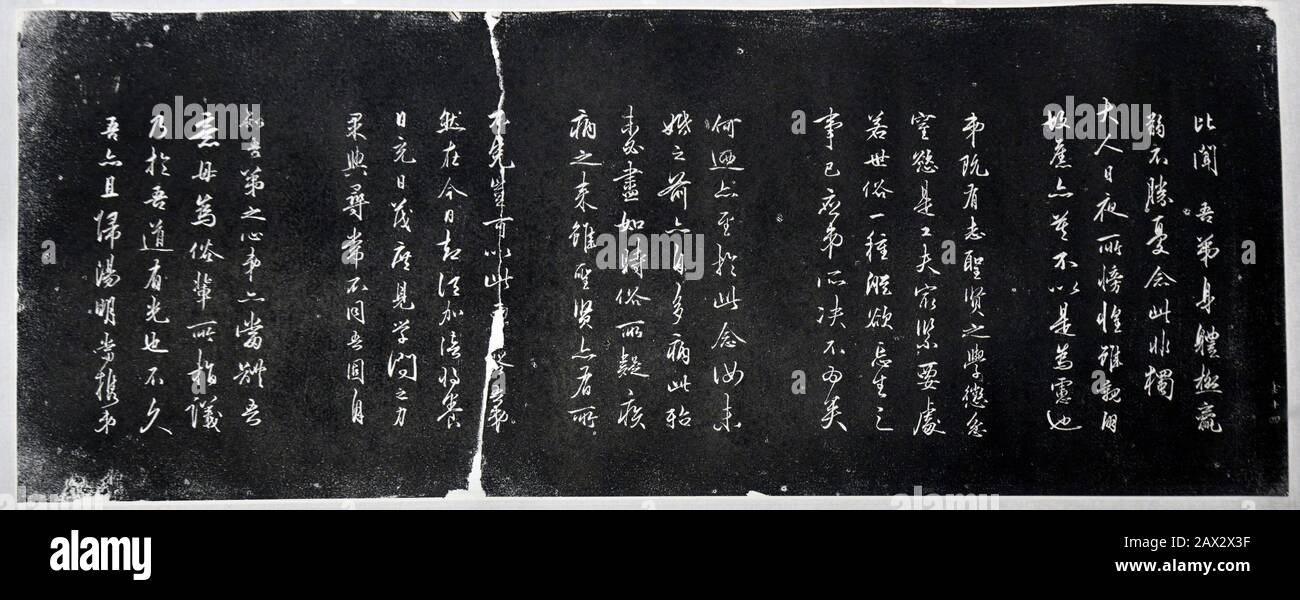 比聞 吾弟身體極羸
弱不勝憂念此非獨
大人日夜所徬惶雖親朋
故舊亦莫不以是為慮也
弟既有志聖賢之學懲忿
窒慾是工夫最緊要處
若世俗一種縱欲忘生之
事已應弟所決不為矣
何迺亦至於此念汝未
婚之前亦自多病此殆
未必盡如時俗所疑疾
病之來雖聖賢亦有所
不免豈可以此專咎吾弟
然在今日却須加倍將養
日充日茂庶見學問之力
果與尋常不同吾固自
知吾弟之心弟亦當體吾
意毋為俗輩所指議
乃於吾道有光也不久
吾亦且歸陽明當携弟
alamy
Image ID: 2AX2X3F
www.alamy.com